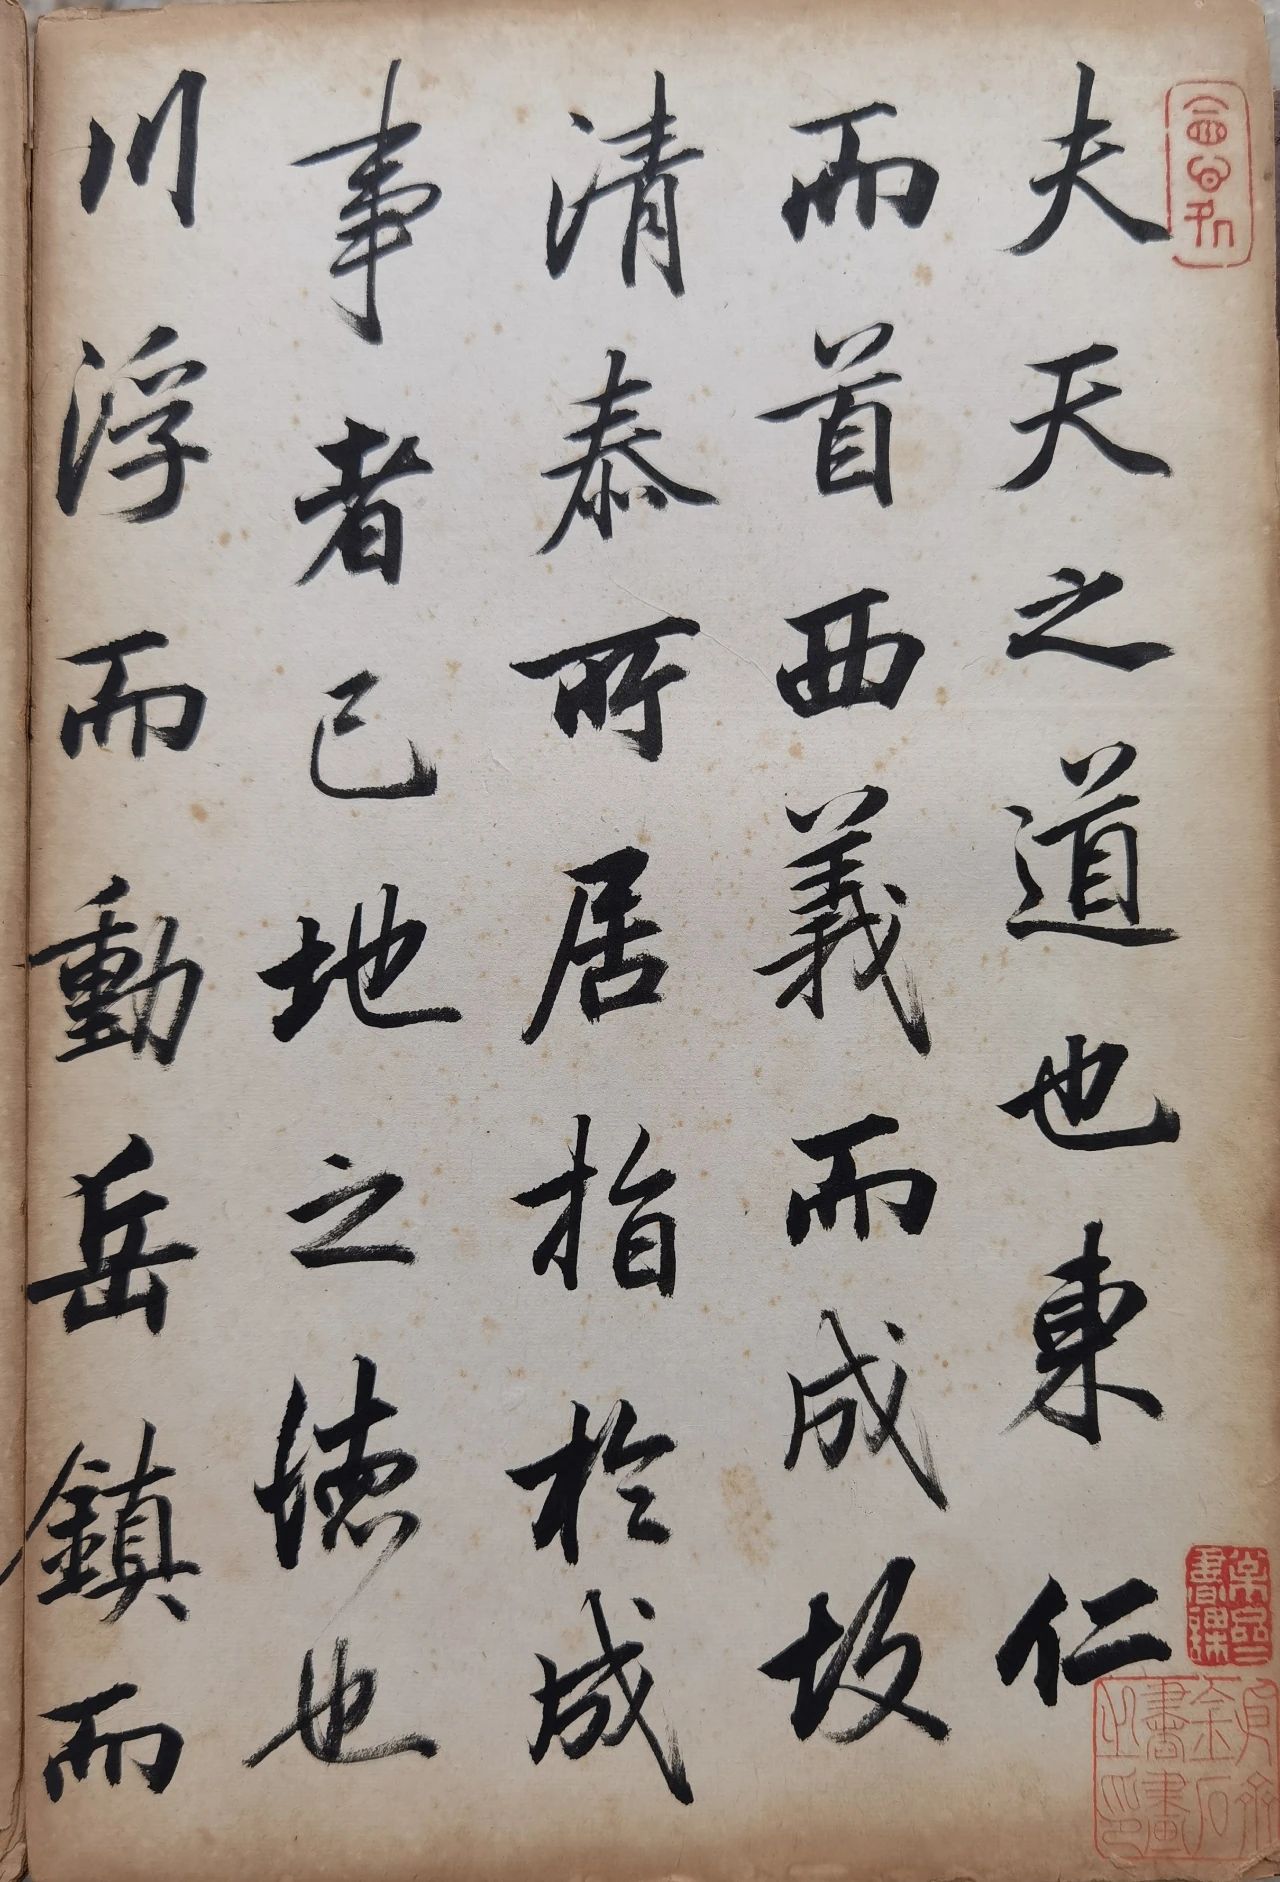 夫天之道也東仁
而首西義而成故
清泰所居指於成
事者已地之德也
川浮而動岳鎮而